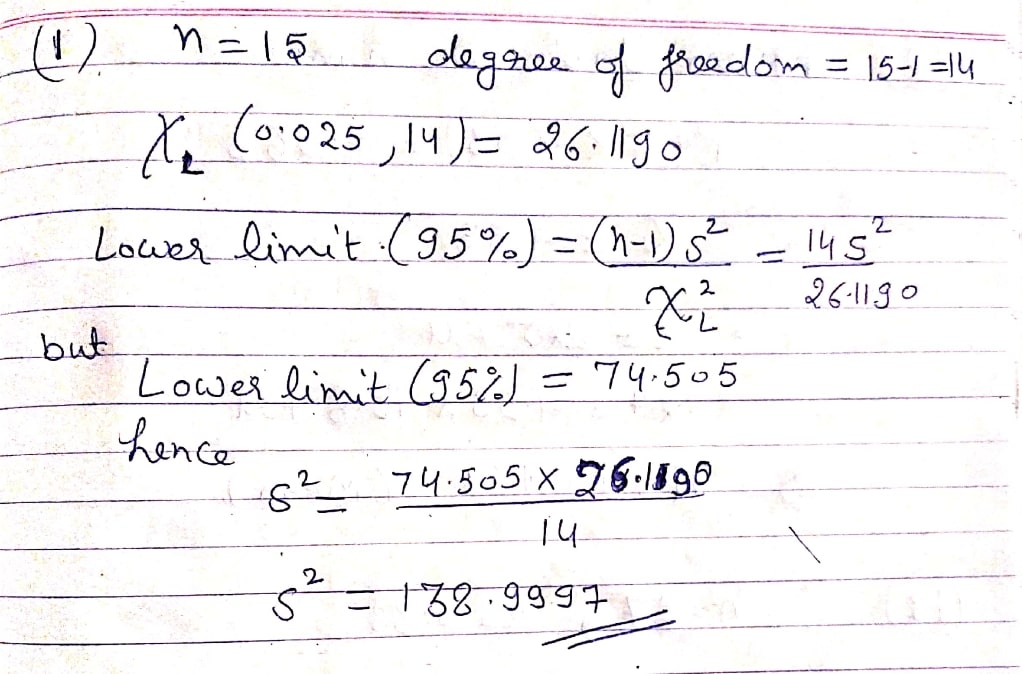 (1) n = 15 degree of freedom = 15-1 = 14
χ_L (0.025, 14) = 26.1190
Lower limit (95%) = (n-1) s² / χ²_L = 14 s² / 26.1190
but
Lower limit (95%) = 74.505
hence
s² = 74.505 × 26.1190 / 14
s² = 138.9997